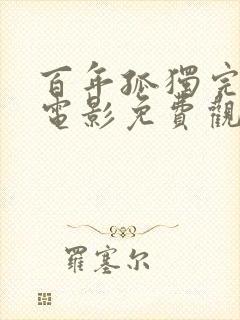 百年孤獨完
電影免費觀
羅塞尔